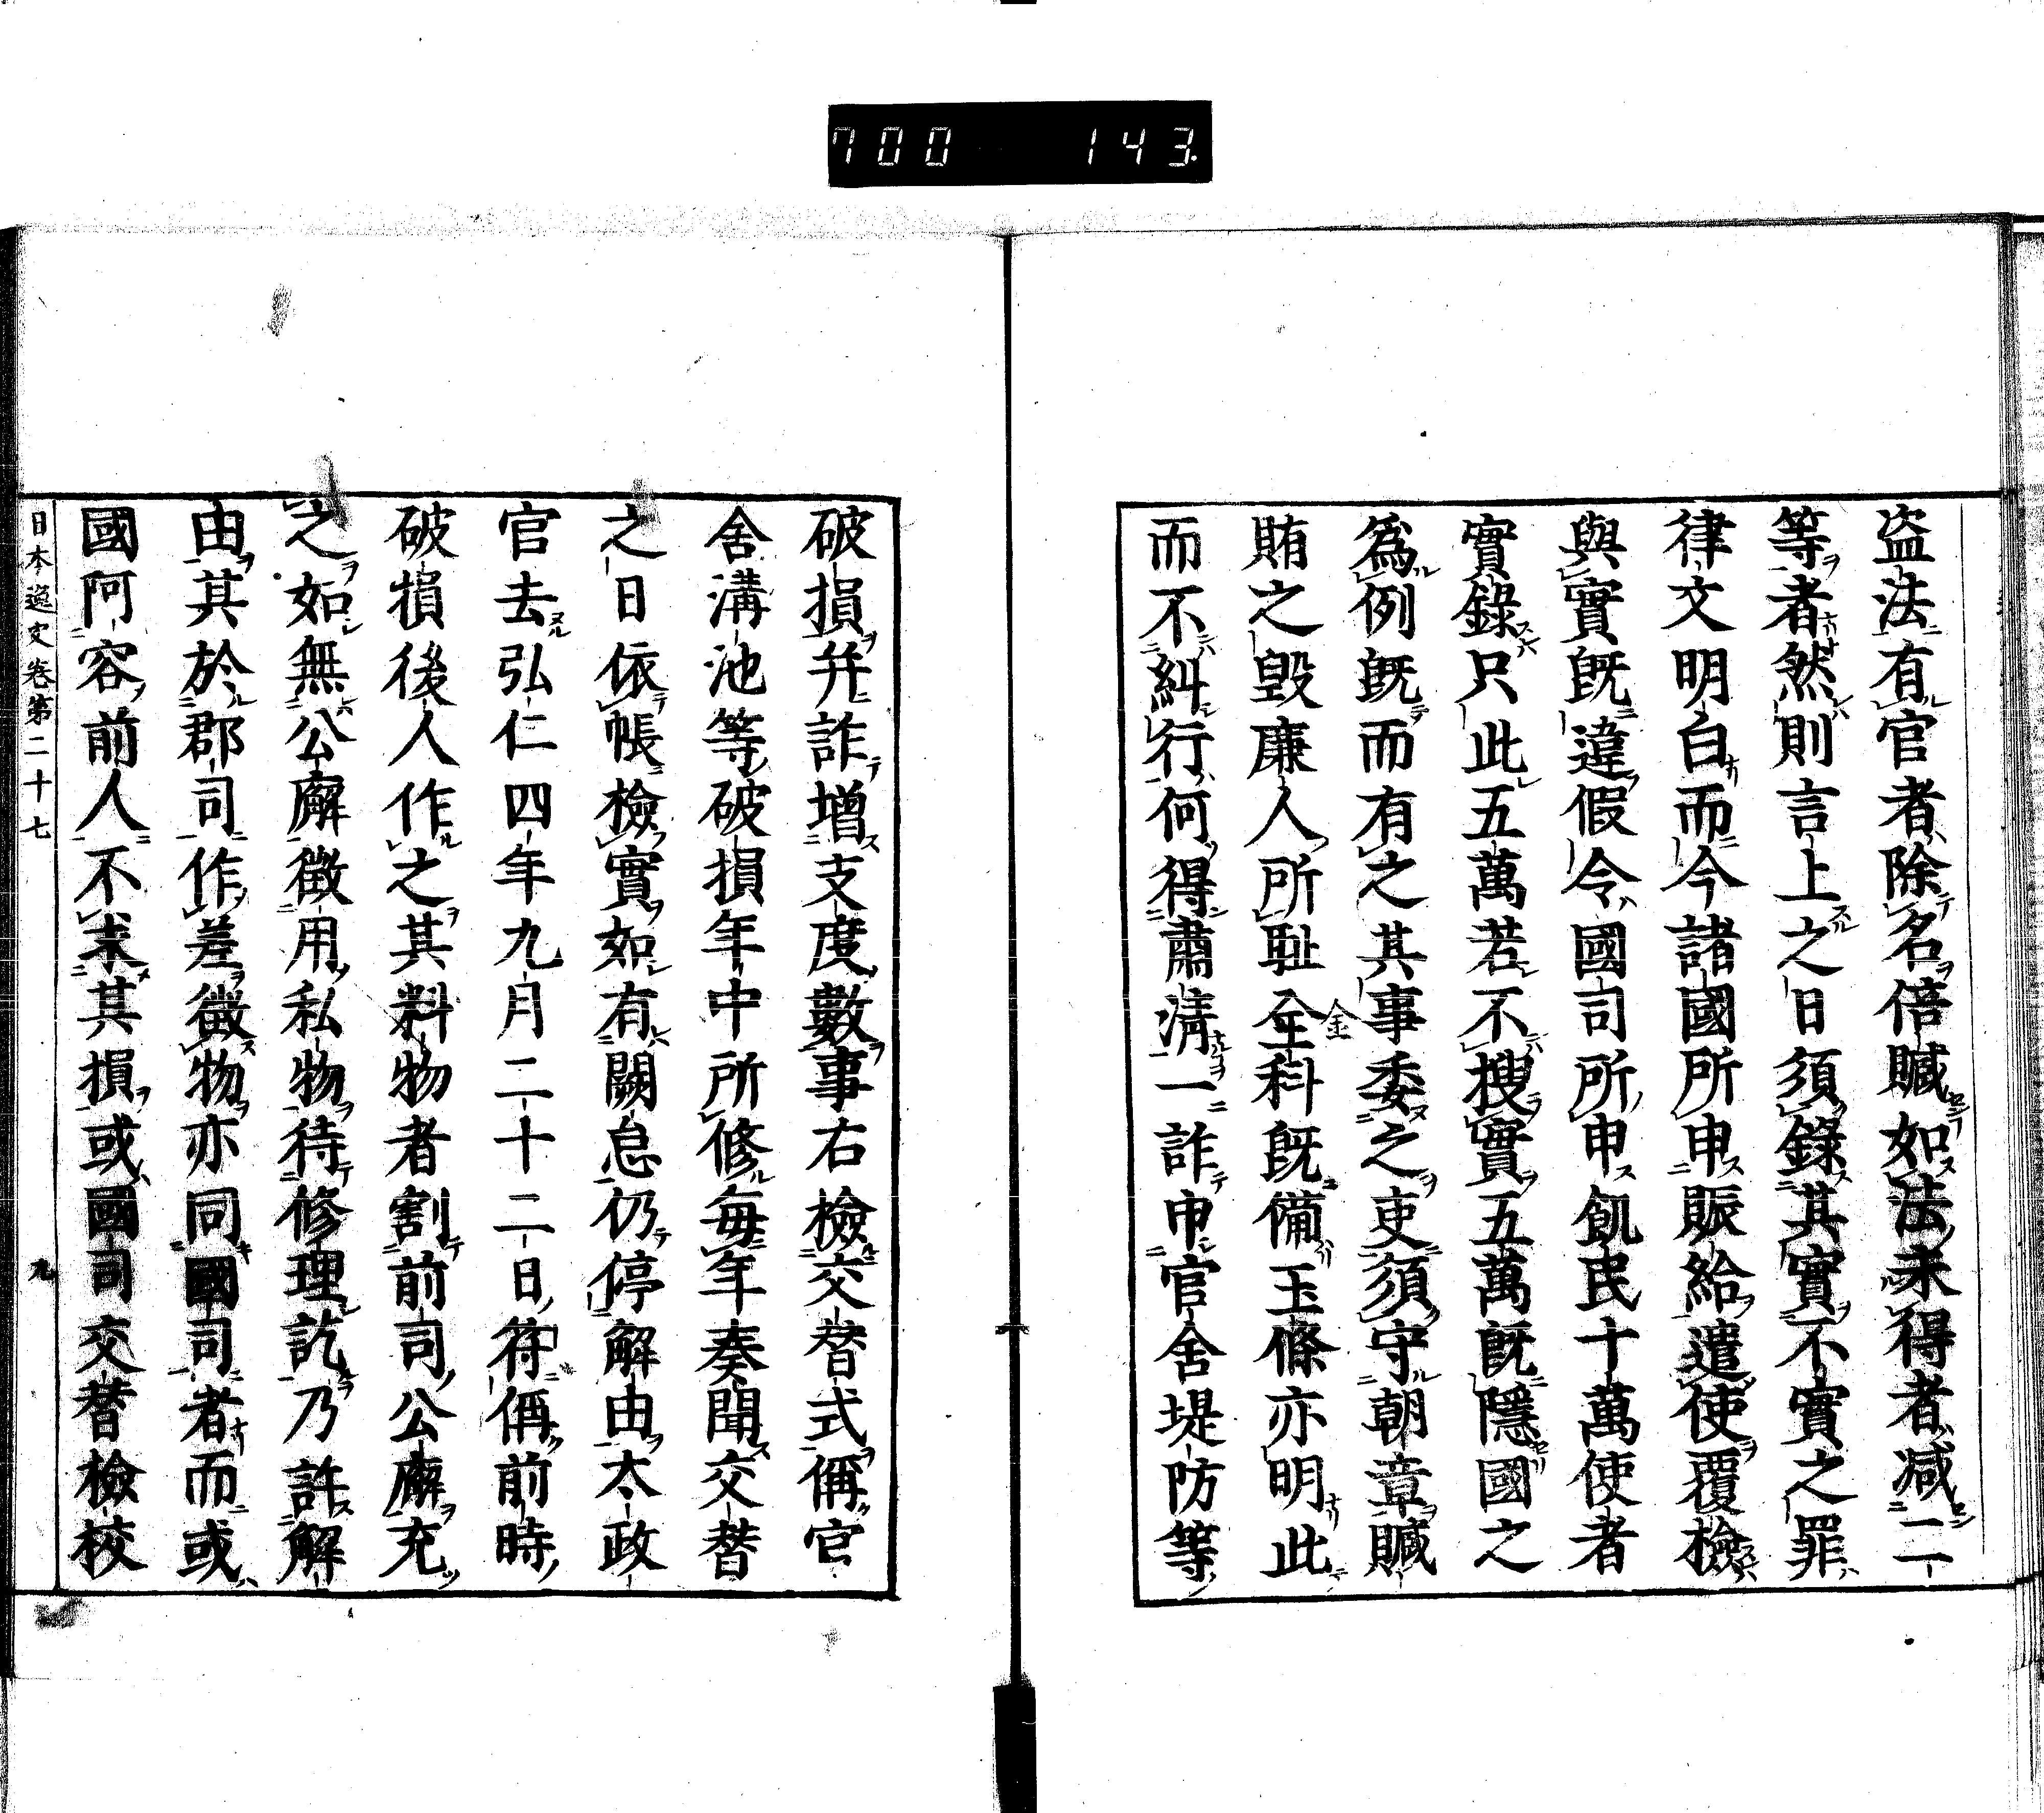 700 143
盗法有官者除名倍贓如法未得者减二
等者然則言上之日須錄其實不實之罪
律文明白而今諸國所申賑給遣使覆檢
與實既違假令國司所申飢民十萬使者
實錄只此五萬若不搜實五萬既隱國之
爲例既而有之其事委之吏須守朝章贓
賄之毀廉人所耻全科既備玉條亦明此
金
而不糾行何得肅淸一詐申官舍堤防等
破損幷詐增支度數事右檢交替式偁官
舍溝池等破損年中所修每年奏聞交替
之日依帳檢實如有闕怠仍停解由太政
官去弘仁四年九月二十二日符偁前時
破損後人作之其料物者割前司公廨充
之如無公廨徵用私物待修理訖乃許解
由其於郡司作差徵物亦同國司者而或
國阿容前人不末其損或國司交替檢校
日本逸史卷第二十七
九